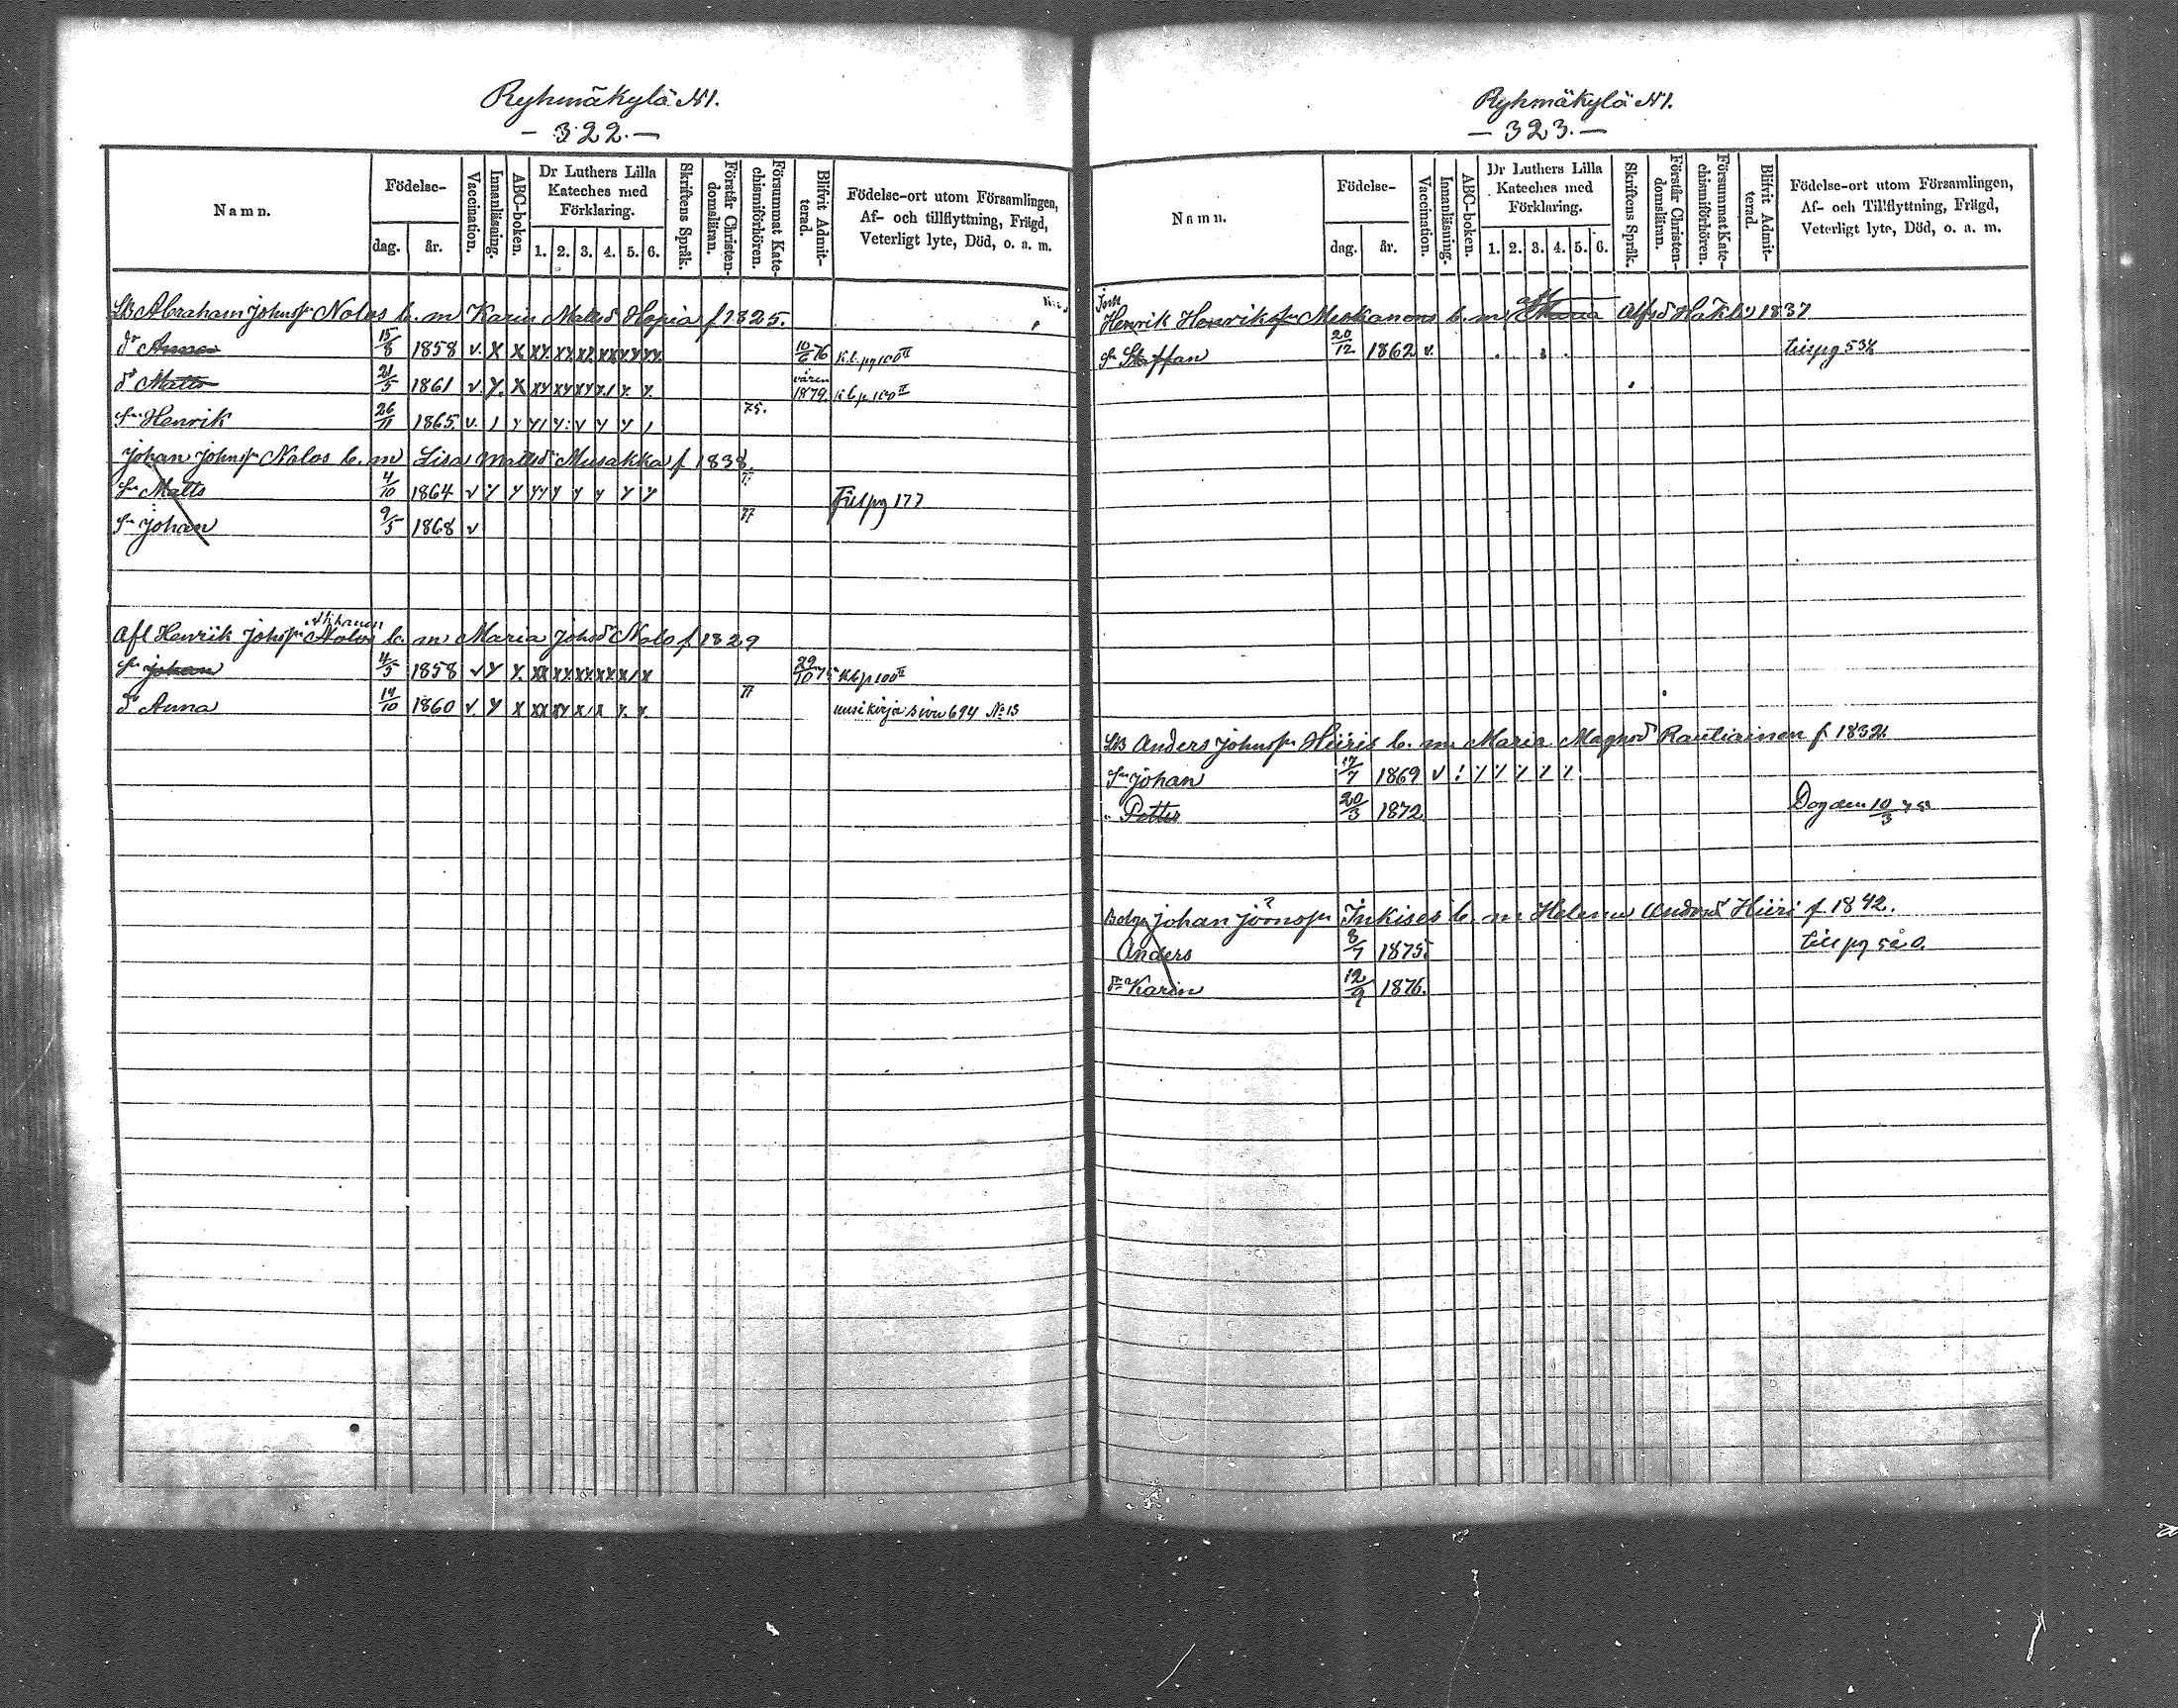 Ryhmäkylä N1.
- 322. -
Namn.
Födelse-
dag.
år.
Vaccination.
Innanläsning.
ABC-boken.
Dr Luthers Lilla
Kateches med
Förklaring.
1. 2. 3. 4. 5. 6.
Skriftens Språk.
Förstår Christen-
domsläran.
Försummat Kate-
chismiförhören.
Blifvit Admit-
terad.
Födelse-ort utom Församlingen,
Af- och tillflyttning, Frägd,
Veterligt lyte, Död, o. a. m.
LB Abraham Johnsn Nalos b. m Karin Mattsd Hepia f 1825.
dr Anna 15/8 1858 v. x x xx xx xx xx xx xx 10/6 76 K.b. pg 100 II
dr Matts 21/5 1861 v. y. x xy xy xy x/ y. y. våren 1879. K b p 100 II
sn Henrik 26/11 1865. v. 75.
Johan Johnsn Nalos b. m Lisa Mattsd Musakka f 1838.
sn Matts 4/10 1864 v Till pg 177
sn Johan 9/5 1868 v 77
Afl Henrik Johsn Nalos b. m Maria Johsd Nalo f 1829
sn Johan 4/5 1858 v 29/10 75 K b p 100 II
dr Anna 14/10 1860 v. 77 uusi kirja sivu 694 No 13
Ryhmäkylä N1.
- 323. -
Namn.
Födelse-
dag.
år.
Vaccination.
Innanläsning.
ABC-boken.
Dr Luthers Lilla
Kateches med
Förklaring.
1. 2. 3. 4. 5. 6.
Skriftens Språk.
Förstår Christen-
domsläran.
Försummat Kate-
chismiförhören.
Blifvit Admit-
terad.
Födelse-ort utom Församlingen,
Af- och Tillflyttning, Frägd,
Veterligt lyte, Död, o. a. m.
Henrik Henriksn Meskanens b. m Alfsd Häkli 1837
sn Staffan 20/12 1862 v. till pg 534
LB Anders Johnsn Hiiris b. m Maria Magnsd Rautiainen f 1832.
sn Johan 17/7 1869 v
" Petter 20/3 1872 Dog den 10/3
Johan Inkises b. m Helena Andrsd Hiiri f 1842.
Anders 8/7 1875. till pg
dr Karin 12/9 1876.